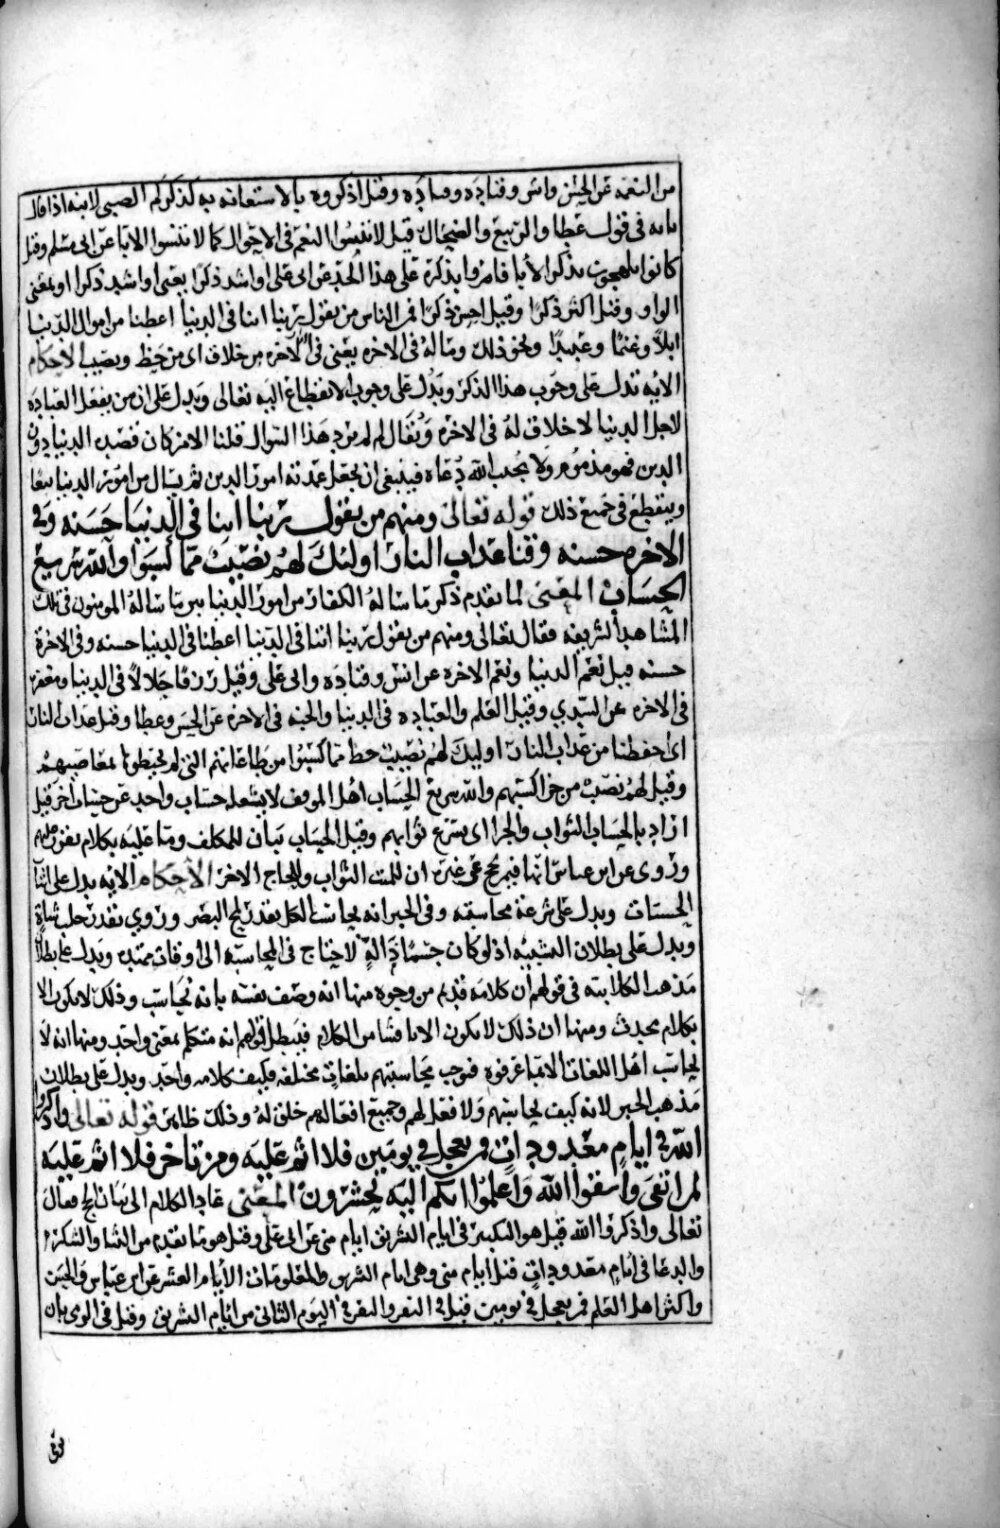 من النعمة عن الحسن وانس وقتادة وقيل اذكروه بالاستعانة به كذكركم الصبي لابيه اذا قال
يابه في قول عطا والربيع والضحاك قيل لا تنسوا النعم في الاحوال كما لا تنسوا الابا عن ابى مسلم وقيل
كانوا يلهجون بذكر الأبا فامروا بذكره على هذا الحد عن ابى على او اشد ذكرا يعنى او اشد ذكرا او بمعنى
الواو وقيل اكثر ذكرا وقيل احسن ذكرا فمن الناس من يقول ربنا اتنا فى الدنيا اعطنا من اموال الدنيا
ابلا وغنما وعبيدا ونحو ذلك وماله فى الاخرة يعنى فى الآخرة من خلاق اى من حظ ونصيب الاحكام
الاية تدل على وجوب هذا الذكر وتدل على وجوب الانقطاع اليه تعالى وتدل على ان من يفعل العبادة
لاجل الدنيا لا خلاق له فى الاخرة ويقال لم لم يرد هذا السوال قلنا الامر كان قصده الدنيا دون
الدين فهو مذموم ولا يجب الله دعاه فينبغى ان يجعل عمدته امور الدين ثم يسال من امور الدنيا تبعا
وينقطع فى جميع ذلك قوله تعالى ومنهم من يقول ربنا اتنا فى الدنيا حسنه وفى
الاخره حسنه وقنا عذاب النار اولئك لهم نصيب مما كسبوا والله سريع
الحساب المعنى لما تقدم ذكر ما ساله الكفار من امور الدنيا بين ما ساله المومنون فى تلك
المشاهد الشريفه فقال تعالى ومنهم من يقول ربنا اتنا فى الدنيا اعطنا فى الدنيا حسنه وفى الاخرة
حسنه قيل نعم الدنيا ونعم الاخره عن انس وقتاده وابى على وقيل رزقا حلالا فى الدنيا ومغفرة
فى الاخره عن السدي وقيل العلم والعباده فى الدنيا والجنه فى الاخرة عن الحسن وعطا وقنا عذاب النار
اى احفظنا من عذاب النار اوليك لهم نصيب حظ مما كسبوا من طاعاتهم التى لم يحبطوها بمعاصيهم
وقيل لهم نصيب من جزا كسبهم والله سريع الحساب اهل الموقف لا يشغله حساب واحد عن حساب اخر قيل
اراد بالحساب الثواب والجزا اى يسرع ثوابهم وقيل الحساب بيان للمكلف وما عليه بكلام
وروى عن ابن عباس انها فيمن حج عن غيره ان للميت الثواب وللحاج الاخر الاحكام الايه تدل على اثبات
الحسنات وتدل على سرعة محاسبته وفى الخبر انه يحاسب الكل بقدر لمح البصر وروي بقدر حلب شاة
وتدل على بطلان التشبيه اذ لو كان جسما ذا اله لاحتاج فى المحاسبه الى اوقات ممتده وتدل على بطلان
مذهب الكلابيه فى قولهم ان كلامه قديم من وجوه منها انه وصف نفسه بانه يحاسب وذلك لا يكون الا
بكلام محدث ومنها ان ذلك لا يكون الا باقسام الكلام فيبطل قولهم انه متكلم بمعنى واحد ومنها انه لا
يحاسب اهل اللغات الا بما عرفوه فوجب محاسبتهم بلغات مختلفه فكيف كلامه واحد وتدل على بطلان
مذهب الجبر لانه كيف يحاسبهم ولا فعل لهم وجميع افعالهم خلق له وذلك ظاهر قوله تعالى واذكروا
الله فى ايام معدودات فمن تعجل فى يومين فلا اثم عليه ومن تاخر فلا اثم عليه
لمن اتقى واتقوا الله واعلموا انكم اليه تحشرون المعنى عاد الكلام الى بيان الحج فقال
تعالى واذكروا الله قيل هو التكبير فى ايام التشريق ايام منى عن ابى على وقيل هو ما تقدم من الثنا والشكر
والدعا فى ايام معدودات قيل ايام منى وهى ايام التشريق والمعلومات الأيام العشر عن ابن عباس والحسن
واكثر اهل العلم فمن تعجل فى يومين قيل فى النفر والنفر فى اليوم الثانى من ايام التشريق وقيل فى